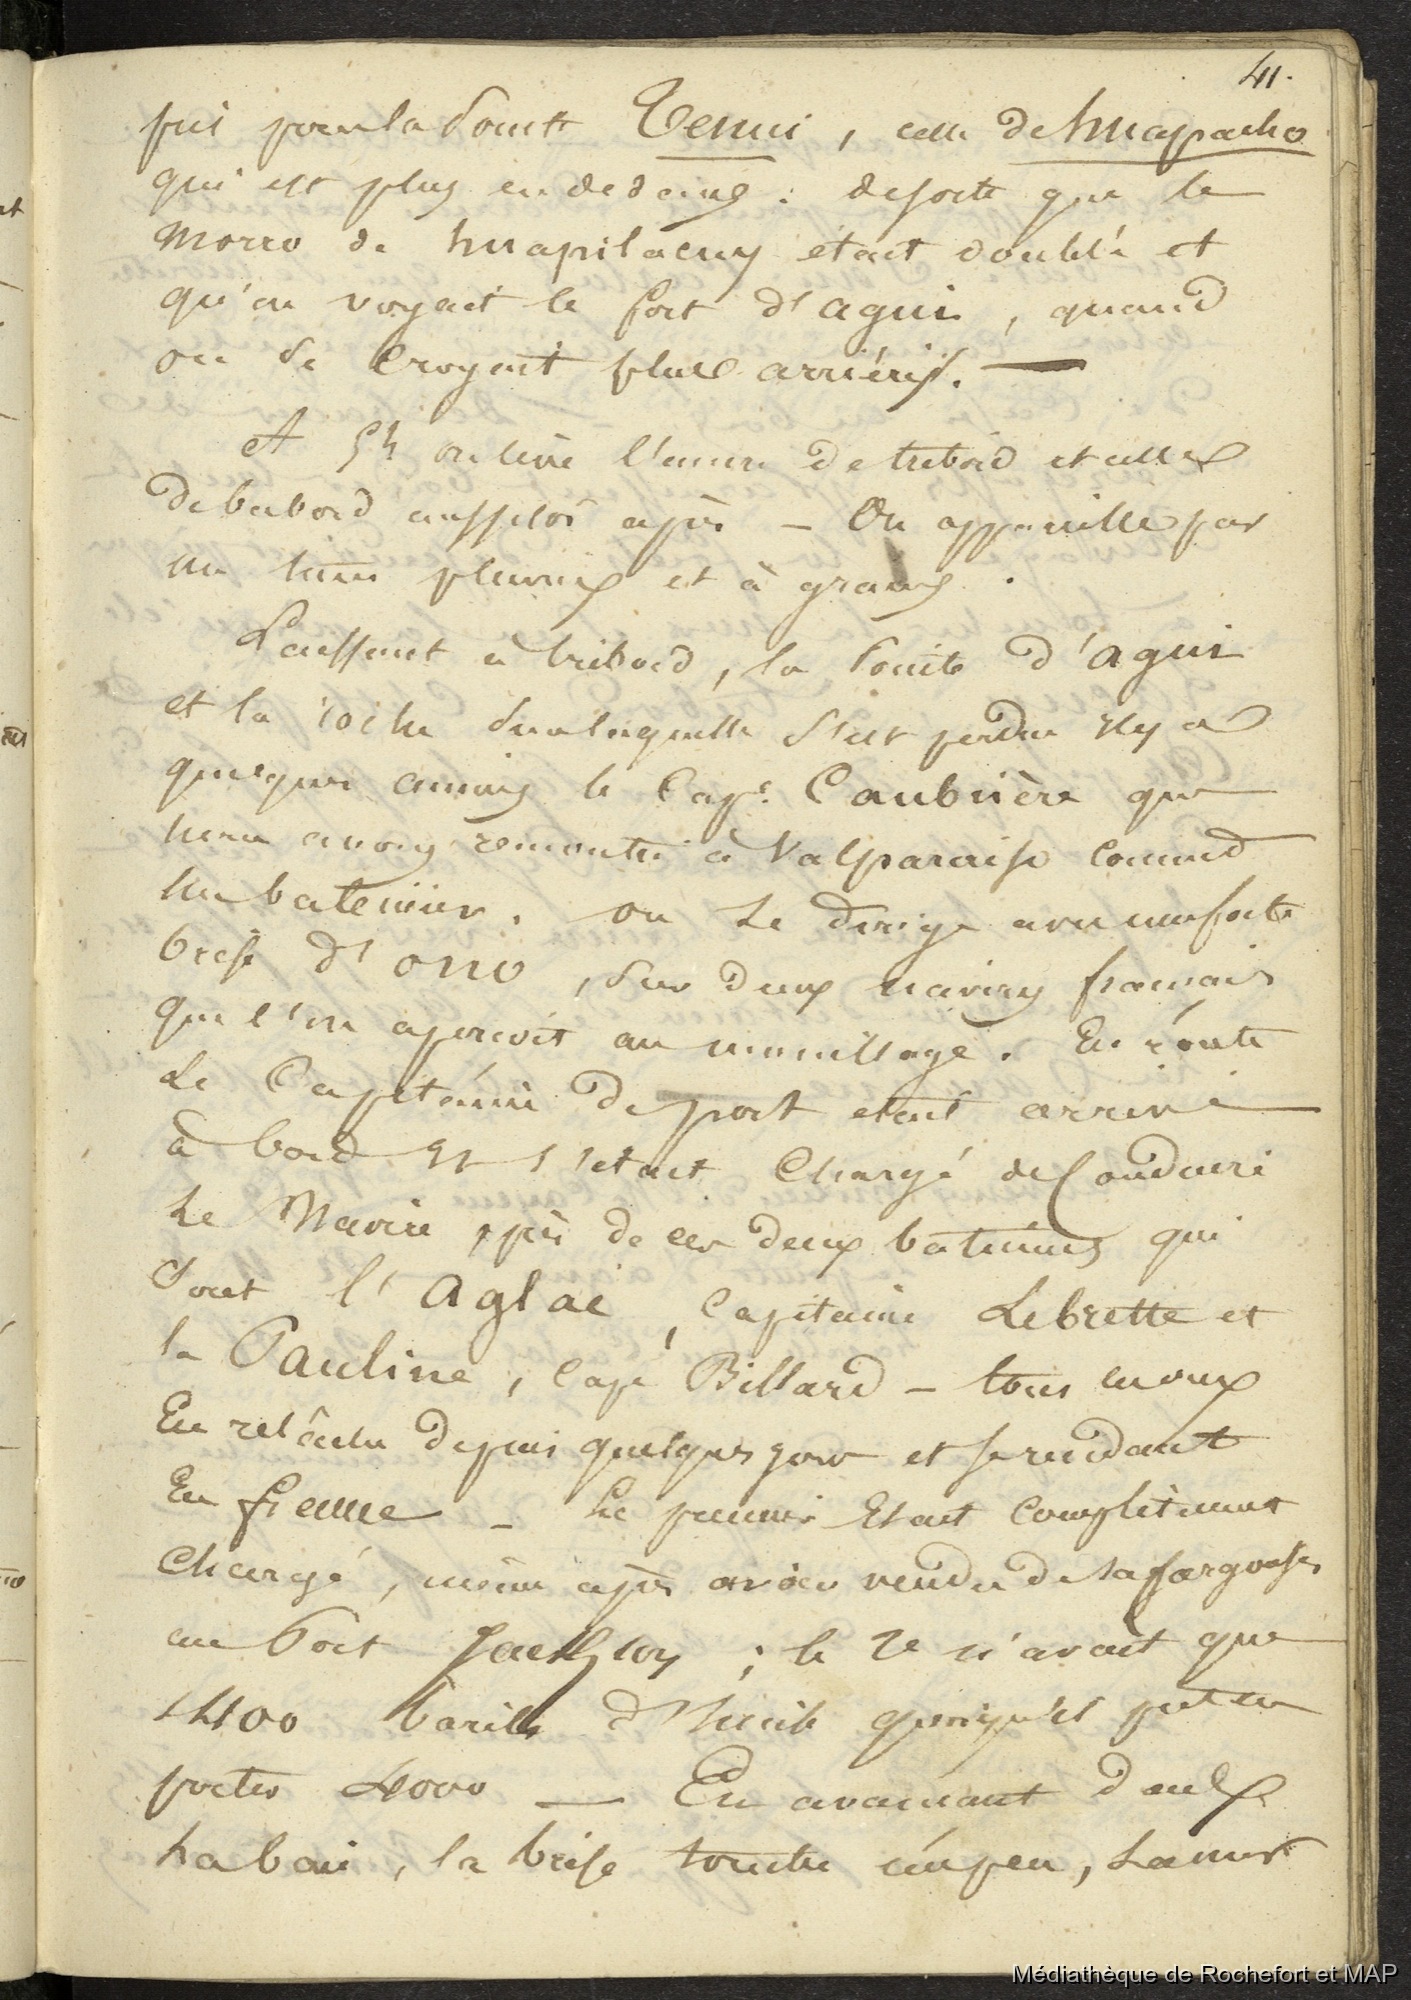 41.
pris pour la Pointe Tenui, celle de huapacho
qui est plus en dedans : desorte que le
Morro de huapilacuy était doublé et
qu'on voyait le fort d'agui, quand
on se croyait plus arriérés. —
A 5h on lève l'ancre de tribord et celle
de babord aussitôt après — On appareille par
un tems pluvieux et à grains.
Laissant à tribord, la Pointe d'agui
et la roche sur laquelle s'est perdu il y a
quelques années le Cape. Caubrière que
nous avons rencontré à Valparaiso command
un baleinier. on se dirige avec une forte
brise d'ono, sur deux navires français
que l'on aperçoit au mouillage. En route
Le Capitaine de port était arrivé
à bord et s'était Chargé de Conduire
Le Navire près de ces deux batimens qui
sont l'Aglaé, Capitaine Lebrette et
la Pauline, Cape Billard — tous deux
En relâche depuis quelques jours et se rendant
En france — Le premier Etait Complètement
Chargé, même après avoir vendu de sa Cargaison
au Port Jackson ; le 2e n'avait que
1400 barils d'huile quoiqu'il put en
porter 4000 — En avancant dans
La baie, la brise tombe un peu, La mer
Médiathèque de Rochefort et MAP